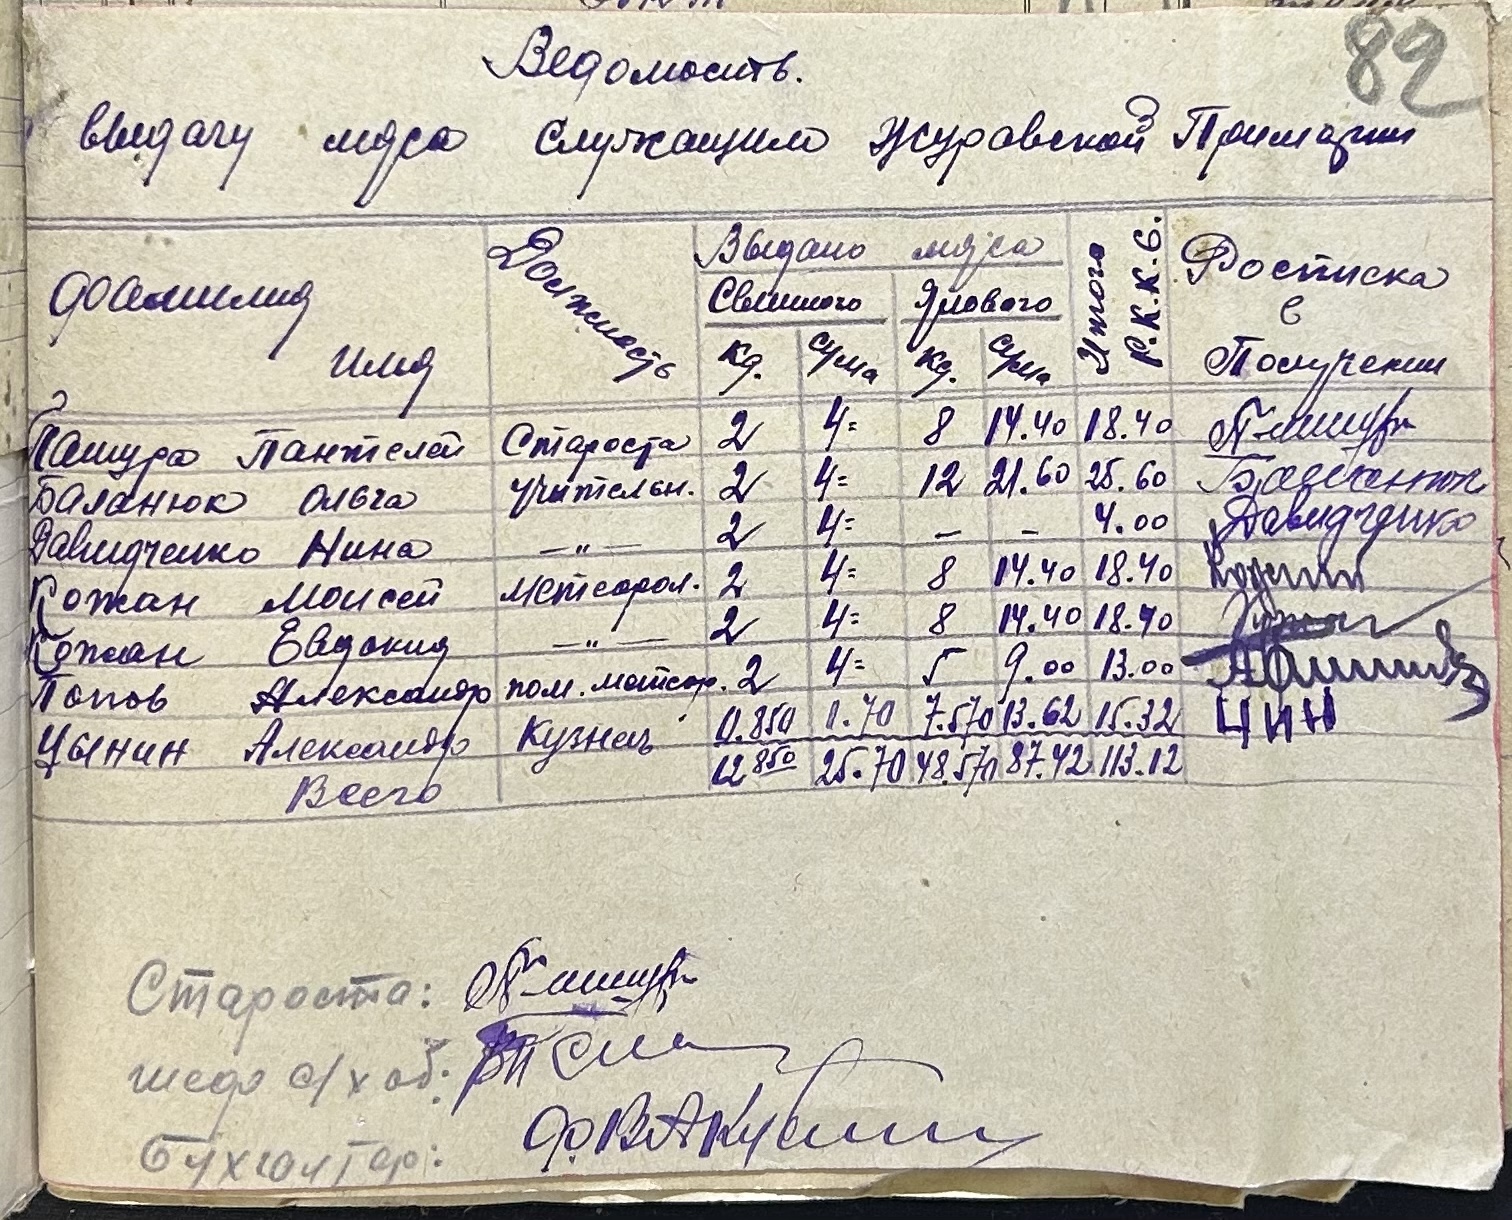 82
Ведомость.
выдачу мяса служащим Журавской Примарии
Фамилия Имя Должность Выдано мяса Итого Р.К.К.С. Росписка в Получении
Свинного Ялового
кг. сума кг. сума
Пашура Пантелей Староста 2 4= 8 14.40 18.40
Баланюк Ольга учительн. 2 4= 12 21.60 25.60 Баланюк
Давидченко Нина —„— 2 4= – – 4.00 Давидченко
Кожан Моисей метеорол. 2 4= 8 14.40 18.40
Кожан Евдокия —„— 2 4= 8 14.40 18.40
Попов Александр пом. метеор. 2 4= 5 9.00 13.00
Цынин Александр Кузнец 0.850 1.70 7.570 13.62 15.32 ЦИН
Всего 12 850 25.70 48.570 87.42 113.12
Староста:
шеф с/х об:
Бухгалтер: